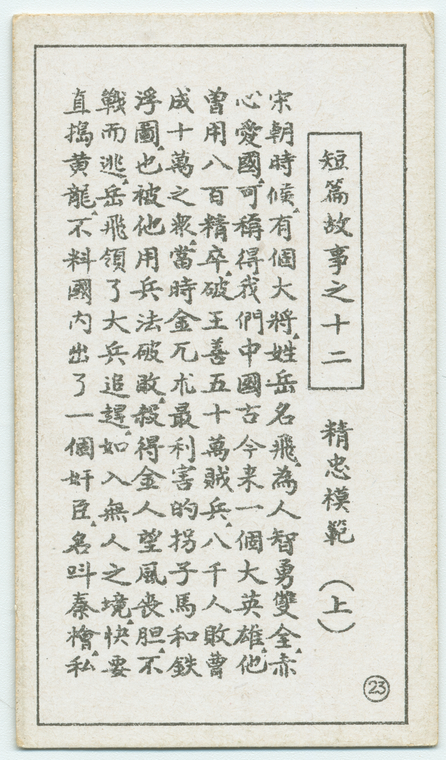 短篇故事之十二
精忠模範（上）
宋朝時候，有個大將，姓岳名飛，為人智勇雙全，赤
心愛國，可稱得我們中國古今来一個大英雄，他
曾用八百精卒，破王善五十萬賊兵，八千人敗曹
成十萬之衆，當時金兀朮最利害的拐子馬和鉄
浮圖，也被他用兵法破敗，殺得金人望風丧胆，不
戰而逃，岳飛領了大兵追趕，如入無人之境，快要
直搗黃龍，不料國内出了一個奸臣，名呌秦檜，私
23